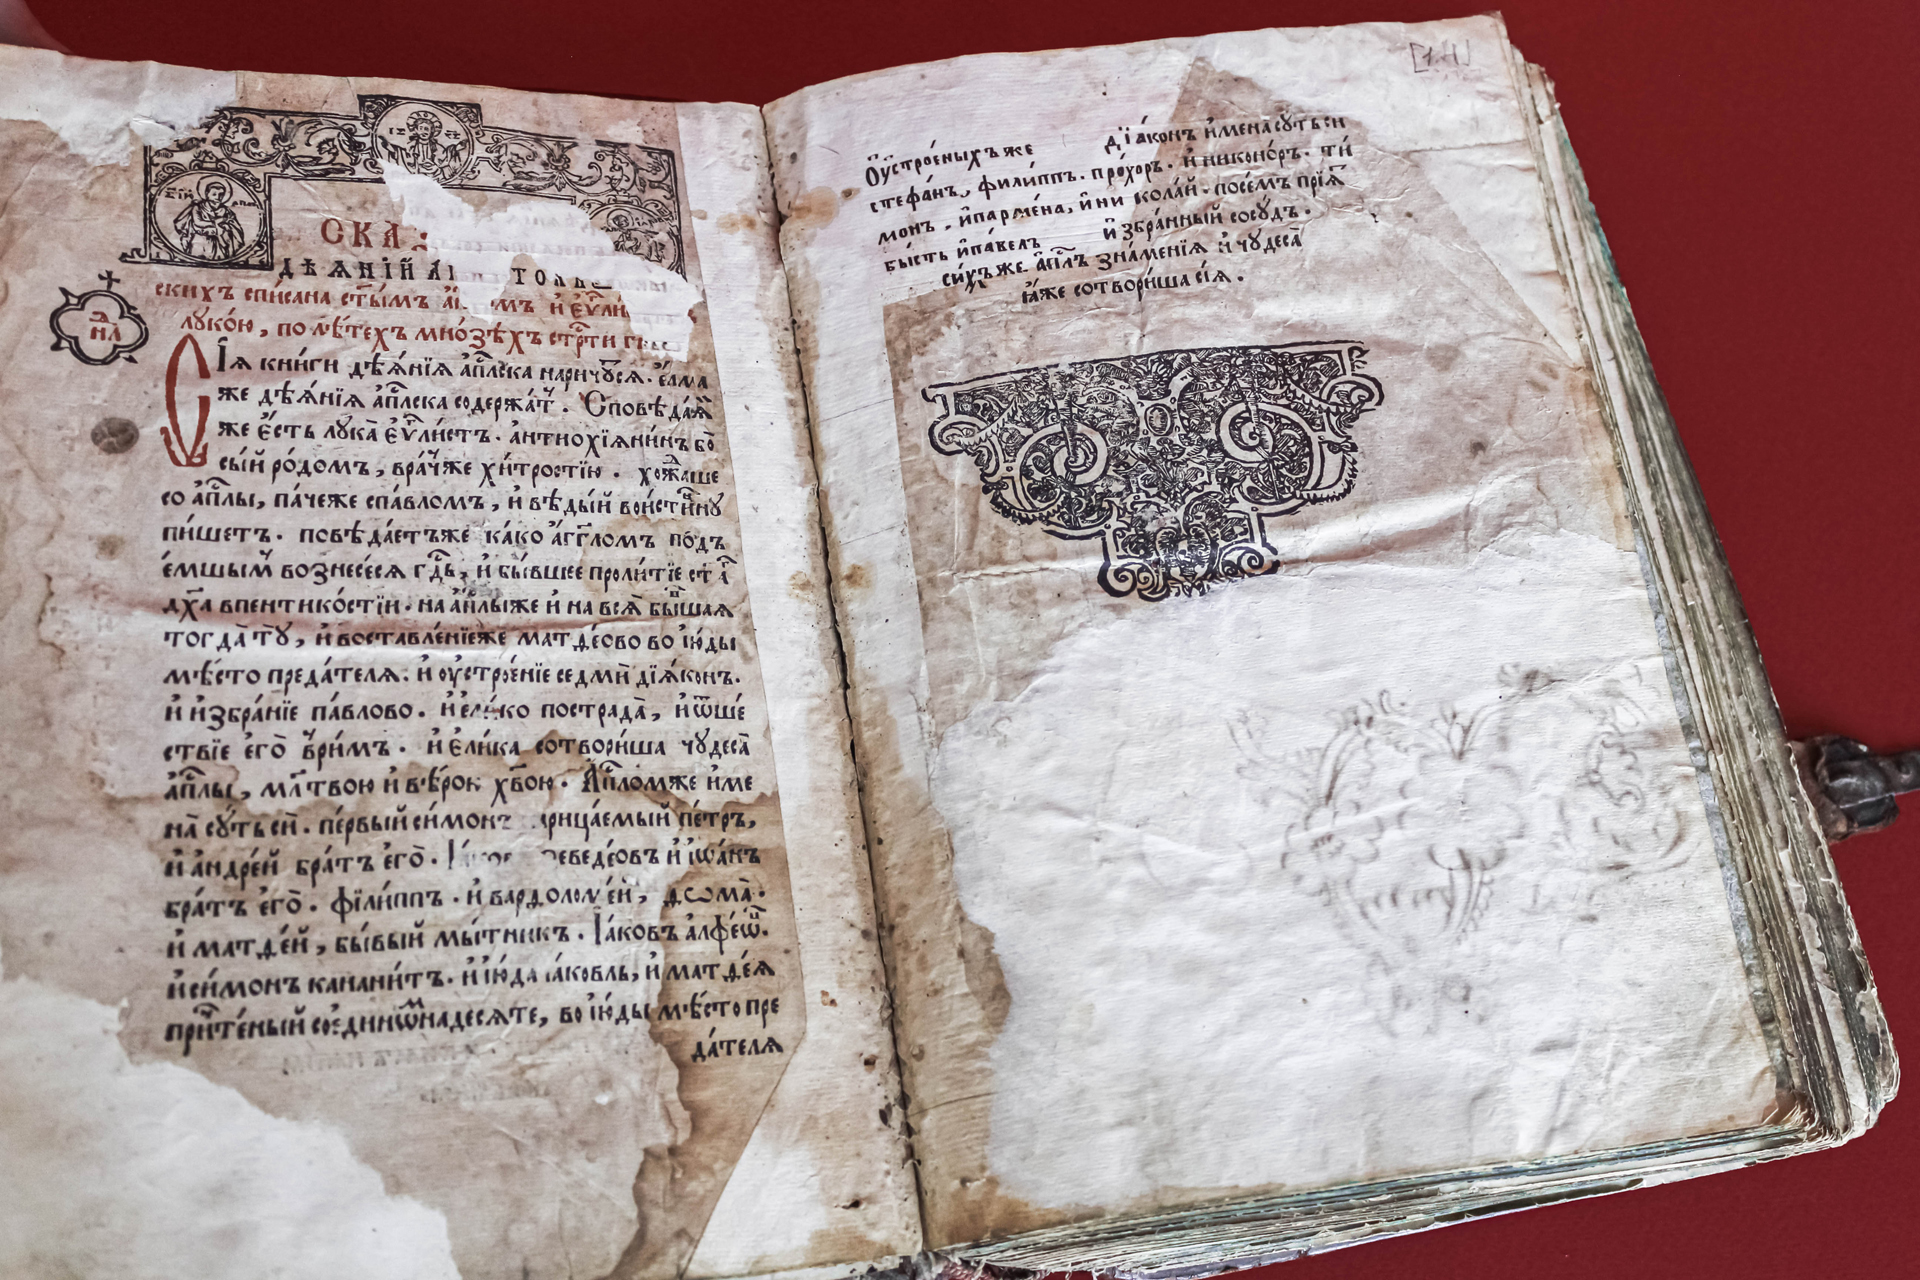 СКА
дѣѧнїй А тольс
скихъ списана ст҃ымъ а мъ и҆ є҆ѵ҃ли
луко́ю, по лѣ́техъ мно́зѣхъ стрⷭ҇ти г
за҃ нл҃
Сїѧ кни́ги дѣѧ̑нїѧ а҆п҃лска наричꙋ́сѧ. є҆лма
же дѣѧ̑нїѧ а҆п҃лска содержа́тъ. Сповѣ́даѧй
же є҆́сть лꙋка̀ є҆ѵ҃ли́стъ. антиохїѧни́нъ бо̀
сы́й ро́домъ, вра́чже хи́тростїю. хожда́ше
со а҆п҃лы, па́чеже спа́вломъ, и҆ вѣ́дый вои́стиннꙋ
пи́шетъ. повѣ́даєтъже ка́ко а҆́гг҃ломъ подъ
є҆́мшымъ вознесе́сѧ гдⷭ҇ь, и҆ бы́вшее проли́тїе ст҃а́г
дх҃а впентико́стїи. на а҆п҃лыже и҆ на всѧ̀ бы́вшаѧ
тогда̀ тꙋ̀, и҆ воставле́нїеже матѳе́ово во і҆ю́ды
мѣ́сто преда́телѧ: и҆ ᲂу҆строе́нїе седмѝ дїѧ́конъ.
и҆ и҆збра́нїе па́влово. и҆ ели́ко пострада̀, и҆ ѿше́
ствїе є҆гѡ̀ в́римъ. и҆ є҆ли́ка сотвори́ша чꙋдеса̀
а҆п҃лы, мл҃твою и҆ вѣ́рою хв҃ою. А҆п҃ломже и҆ме
на̀ сꙋ́ть сѝ. пе́рвый си́монъ рица́емый пе́тръ,
и҆ андре́й бра́тъ є҆гѡ̀. І҆а́ков еведе́овъ и҆ і҆ѡа́нъ
бра́тъ є҆гѡ̀. фїли́ппъ. и҆ вардоломе́й, ѳѡма̀.
и҆ матѳе́й, бы́вый мы́тникъ. І҆а́ковъ алфе́ѡвъ.
и҆ си́монъ канани́тъ. и҆ і҆ю́да і҆а́ковль, и҆ матѳе́ѧ
причте́ный соє҆динѡмнадесѧ́те, во і҆ю́ды мѣ́сто пре
да́телѧ
Оу҆стро́еныхъже дїа́конъ и҆мена̀ сꙋ́ть сѝ
стефа́нъ, фили́ппъ. про́хоръ. и҆ никоно́ръ. ти́
монъ, и҆ парме́на, и҆ ни кола́й. посе́мъ прїѧ́
бы́сть и҆ па́велъ и҆збра́нный сосꙋ́дъ.
си́хъже а҆п҃лъ зна́менїѧ и҆ чꙋдеса̀
ꙗ҆̀же сотвори́ша сїѧ̀.